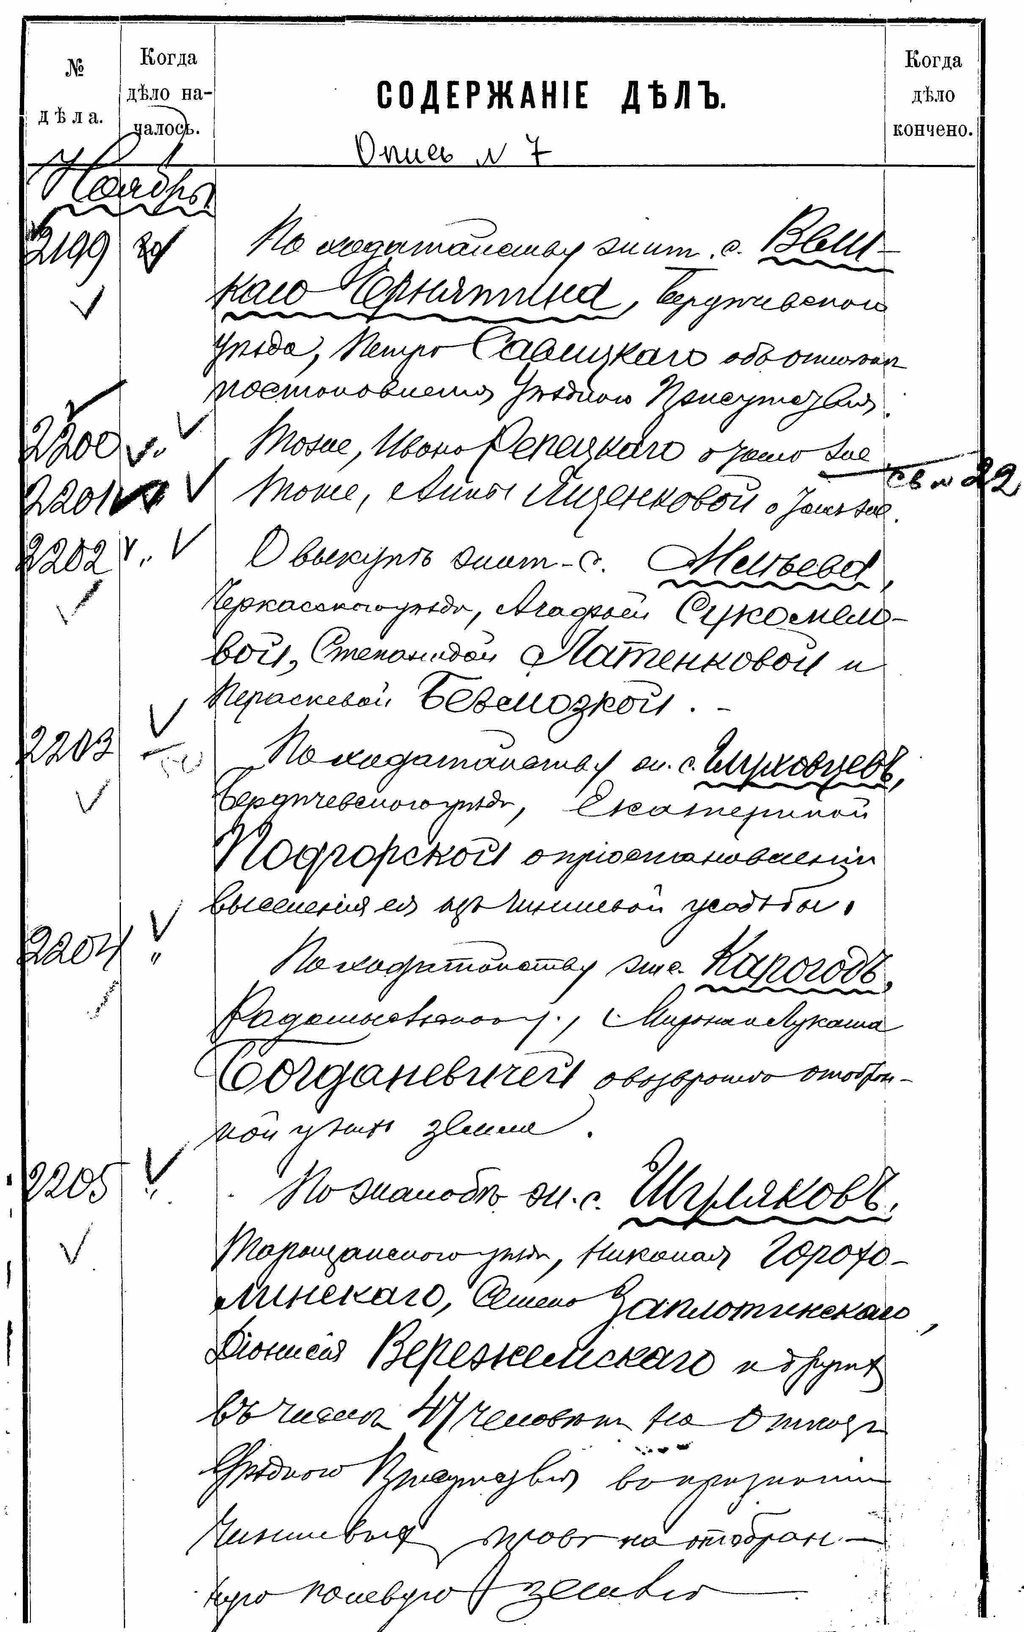 № дѣла.
Когда дѣло началось.
СОДЕРЖАНІЕ ДѢЛЪ.
Когда дѣло кончено.
Опись N 7
Ноябрь
2199 По ходатайству жит. с. Вели-
каго Чернятина, Бердичевскаго
уѣзда, Петра Савицкаго объ отмѣнѣ
постановленія Уѣзднаго Присутствія.
2200 " Тоже, Ивана Репецкаго о томъ же
2201 Тоже, Анны Яценковой о томъ же.
св N 22
2202 " О выкупѣ жит. с. Мліева,
Черкасскаго уѣзда, Агафьей Сукомело-
вой, Степанидой Латенковой и
Параскевой Безмозкой. -
2203 По ходатайству ж. с. Глуховцевъ,
Бердичевскаго уѣзда, Екатерины
Подгорской о пріостановленіи
выселенія ея изъ чиншевой усадьбы.
2204 " По ходатайству ж. с. Карогодъ,
Радомысльскаго у., Мирона и Лукаша
Богданевичей о возвратѣ отобран-
ной у нихъ земли.
2205 " По жалобѣ ж. с. Шуляковъ,
Таращанскаго уѣзда, Николая Горохо-
линскаго, Семена Заплотинскаго,
Діонисія Вережемскаго и другихъ
въ числѣ 47 человѣкъ на отказъ
Уѣзднаго Присутствія въ признаніи
чиншевыхъ правъ на отобран-
ную полевую землю